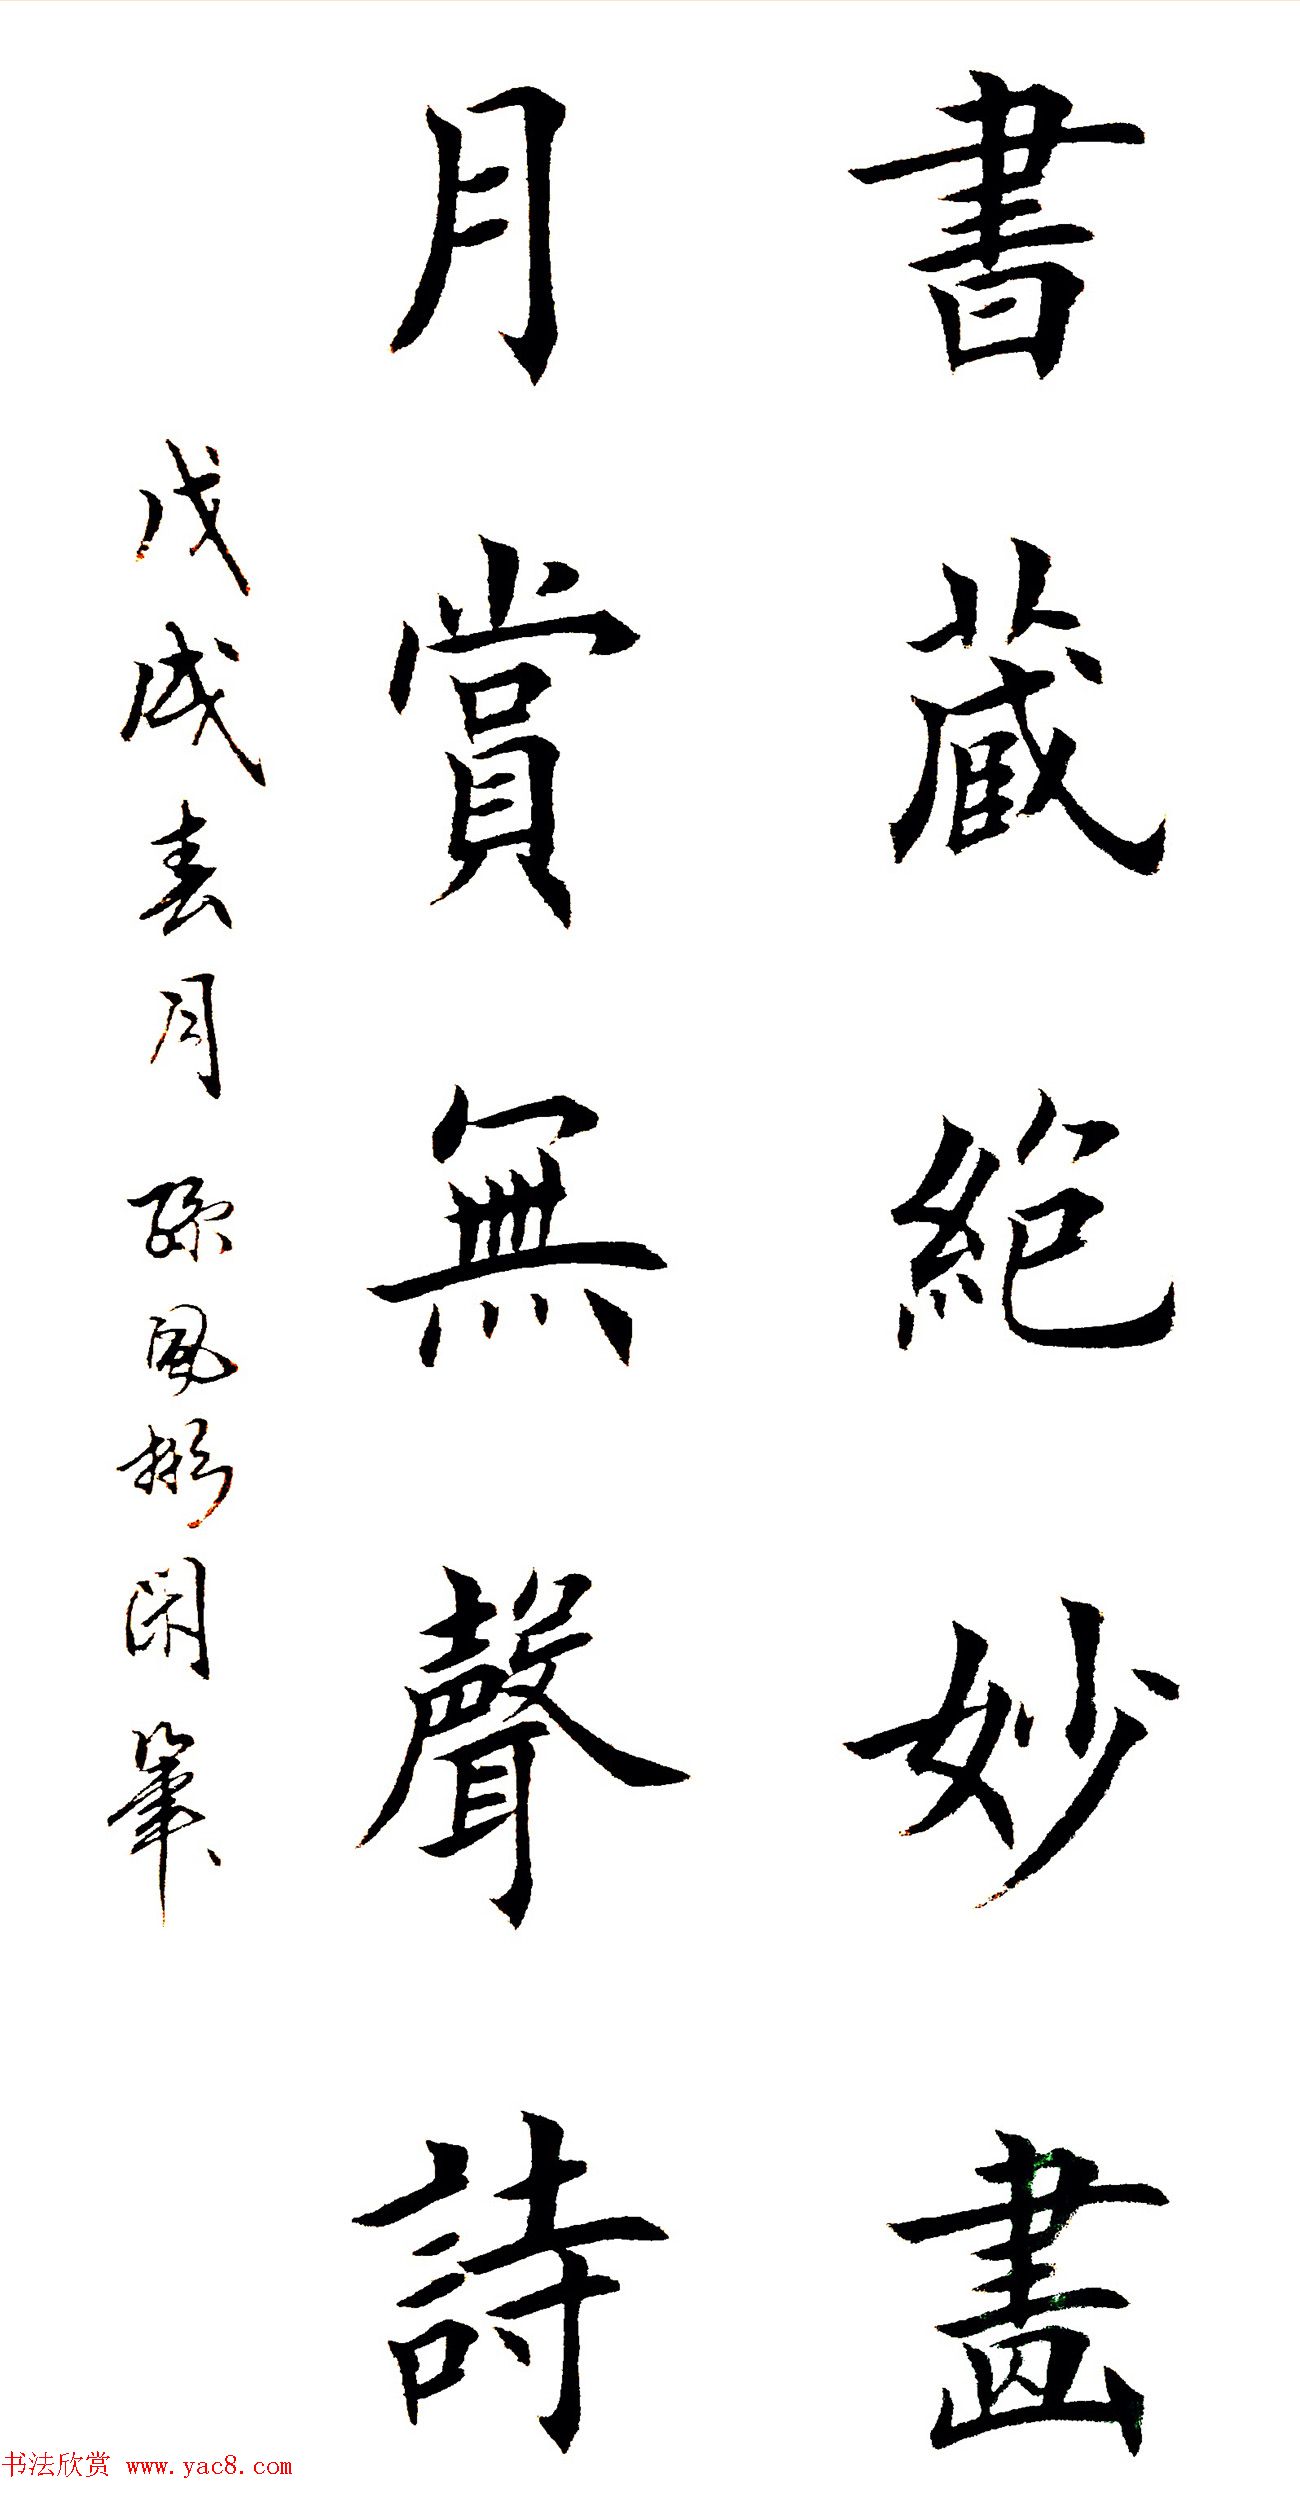 書藏絕妙畫
月賞無聲詩
戊戌春月孫鳳彬閑筆
书法欣赏 www.yac8.com